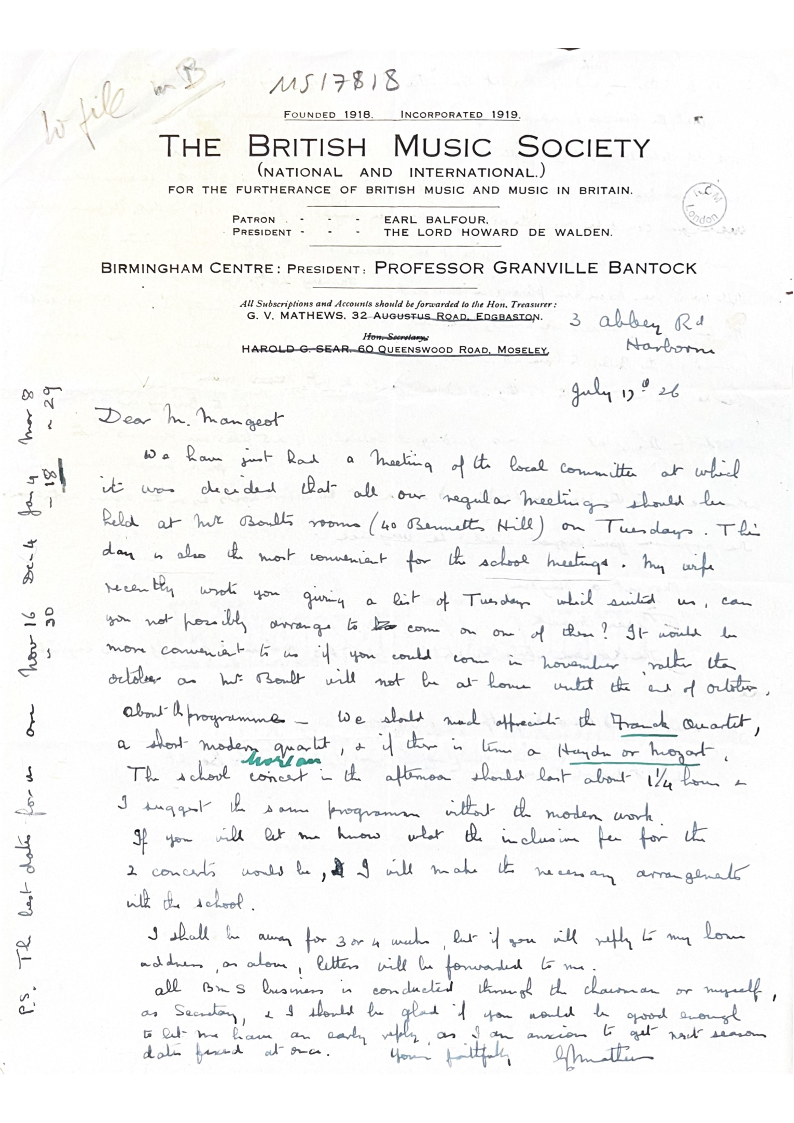 to file in B
MS17818
FOUNDED 1918. INCORPORATED 1919.
THE BRITISH MUSIC SOCIETY
(NATIONAL AND INTERNATIONAL.)
FOR THE FURTHERANCE OF BRITISH MUSIC AND MUSIC IN BRITAIN.
RCM London
PATRON - - - EARL BALFOUR.
PRESIDENT - - - THE LORD HOWARD DE WALDEN.
BIRMINGHAM CENTRE: PRESIDENT: PROFESSOR GRANVILLE BANTOCK
All Subscriptions and Accounts should be forwarded to the Hon. Treasurer:
G. V. MATHEWS, 32 AUGUSTUS ROAD, EDGBASTON.
3 Abbey Rd
Harborne
Hon. Secretary:
HAROLD G. SEAR, 60 QUEENSWOOD ROAD, MOSELEY.
July 17 26
Dear M. Mangeot
We have just had a meeting of the local committee at which
it was decided that all our regular meetings should be
held at Mr Boults rooms (40 Bennetts Hill) on Tuesdays. This
day is also the most convenient for the school meetings. My wife
recently wrote you giving a list of Tuesdays which suited us, can
you not possibly arrange to come on one of them? It would be
more convenient to us if you could come in november rather than
october as Mr Boult will not be at home until the end of october.
About the programme — We should much appreciate the Franck Quartet,
a short modern quartet, & if there is time a Haydn or Mozart.
The school concert in the afternoon should last about 1¼ hours &
I suggest the same programme without the modern work.
If you will let me know what the inclusive fee for the
2 concerts would be, I will make the necessary arrangements
with the school.
I shall be away for 3 or 4 weeks, but if you will reply to my home
address, as above, letters will be forwarded to me.
All BMS business is conducted through the chairman or myself,
as Secretary, & I should be glad if you would be good enough
to let me have an early reply, as I am anxious to get next season
dates fixed at once. Yours faithfully GVMathews
P.S. The best dates for us are Nov 16 Dec 4 Jan 4 Mar 8
" 30 - 18 " 29